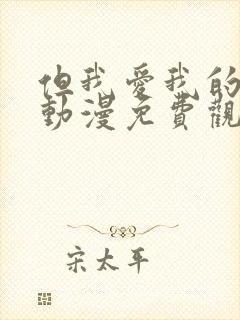 但我爱我的
動漫免費觀
宋太平